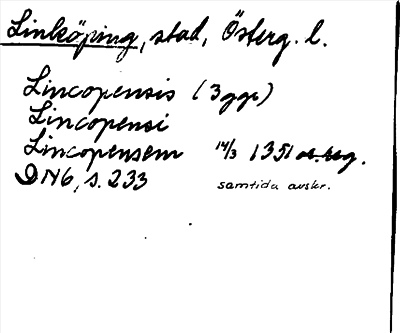 Linköping, stad, Österg. l.
Lincopensis (3 ggr)
Lincopensi
Lincopensem 14/3 1351
DN6, s. 233 samtida avskr.